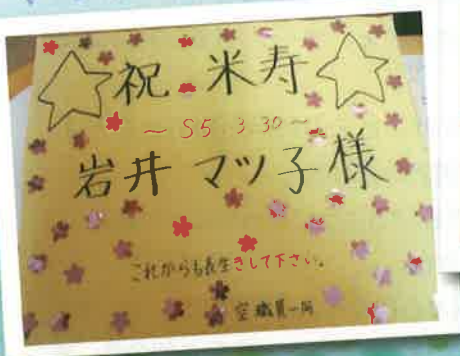 祝 米寿
～S5.3.30～
岩井 マツ子様
これからも長生きして下さい。
職員一同